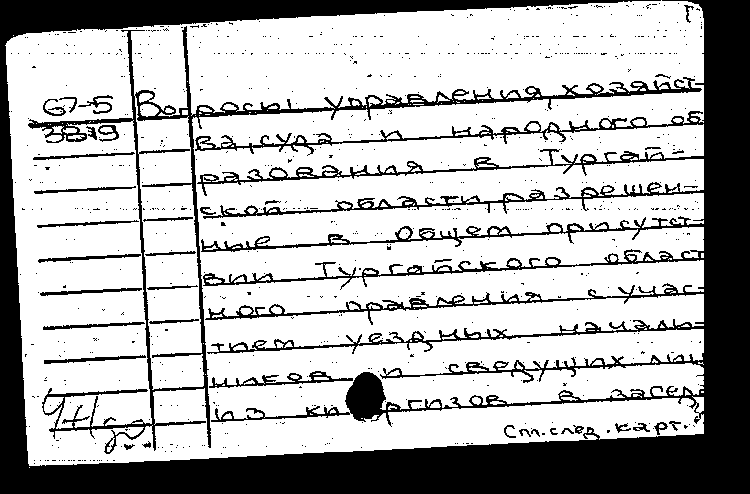 67-5
3879
Вопросы управления, хозяйст-
ва, суда и народного об
разования в Тургай-
ской области, разрешен-
ные в Общем присутст-
вии Тургайского област
ного правления с учас-
тием уездных началь-
ников и сведущих лиц
из киргизов в заседа
См. след. карт.